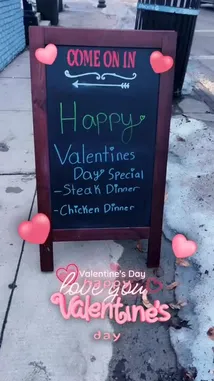 COME ON IN
Happy
Valentines
Day Special
- Steak Dinner
- Chicken Dinner
Valentine's Day
love you
Valentine's
day